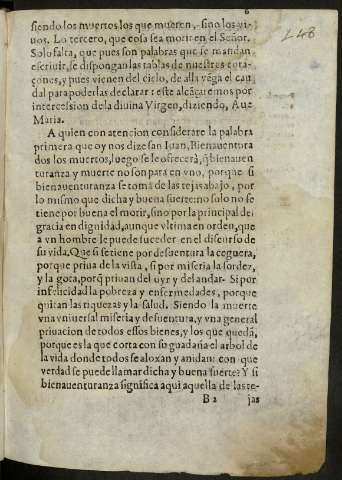 6
L48
siendo los muertos los que mueren, sino los vi-
uos. Lo tercero, que cosa sea morir en el Señor.
Solo falta, que pues son palabras que se mandan
escriuir, se dispongan las tablas de nuestros cora-
çones, y pues vienen del cielo, de alla vēga el cau
dal para poderlas declarar: este alcāçaremos por
intercession de la diuina Virgen, diziendo, Aue
Maria.
A quien con atencion considerare la palabra
primera que oy nos dize san Iuan, Bienauentura
dos los muertos, luego se le ofrecerà, q̄ bienauen
turanza y muerte no son para en vno, porque si
bienauenturanza se toma de las tejas abajo, por
lo mismo que dicha y buena suerte: no solo no se
tiene por buena el morir, sino por la principal des
gracia en dignidad, aunque vltima en orden, que
a vn hombre le puede suceder en el discurso de
su vida. Que si se tiene por desuentura la ceguera,
porque priua de la vista, si por miseria la sordez,
y la gota, porq̄ priuan del oyr y del andar. Si por
infelicidad la pobreza y enfermedades, porque
quitan las riquezas y la salud. Siendo la muerte
vna vniuersal miseria y desuentura, y vna general
priuacion de todos essos bienes, y los que quedā,
porque es la que corta con su guadaña el arbol de
la vida donde todos se aloxan y anidan: con que
verdad se puede llamar dicha y buena suerte? Y si
bienauenturanza significa aqui aquella de las te-
B 2 jas